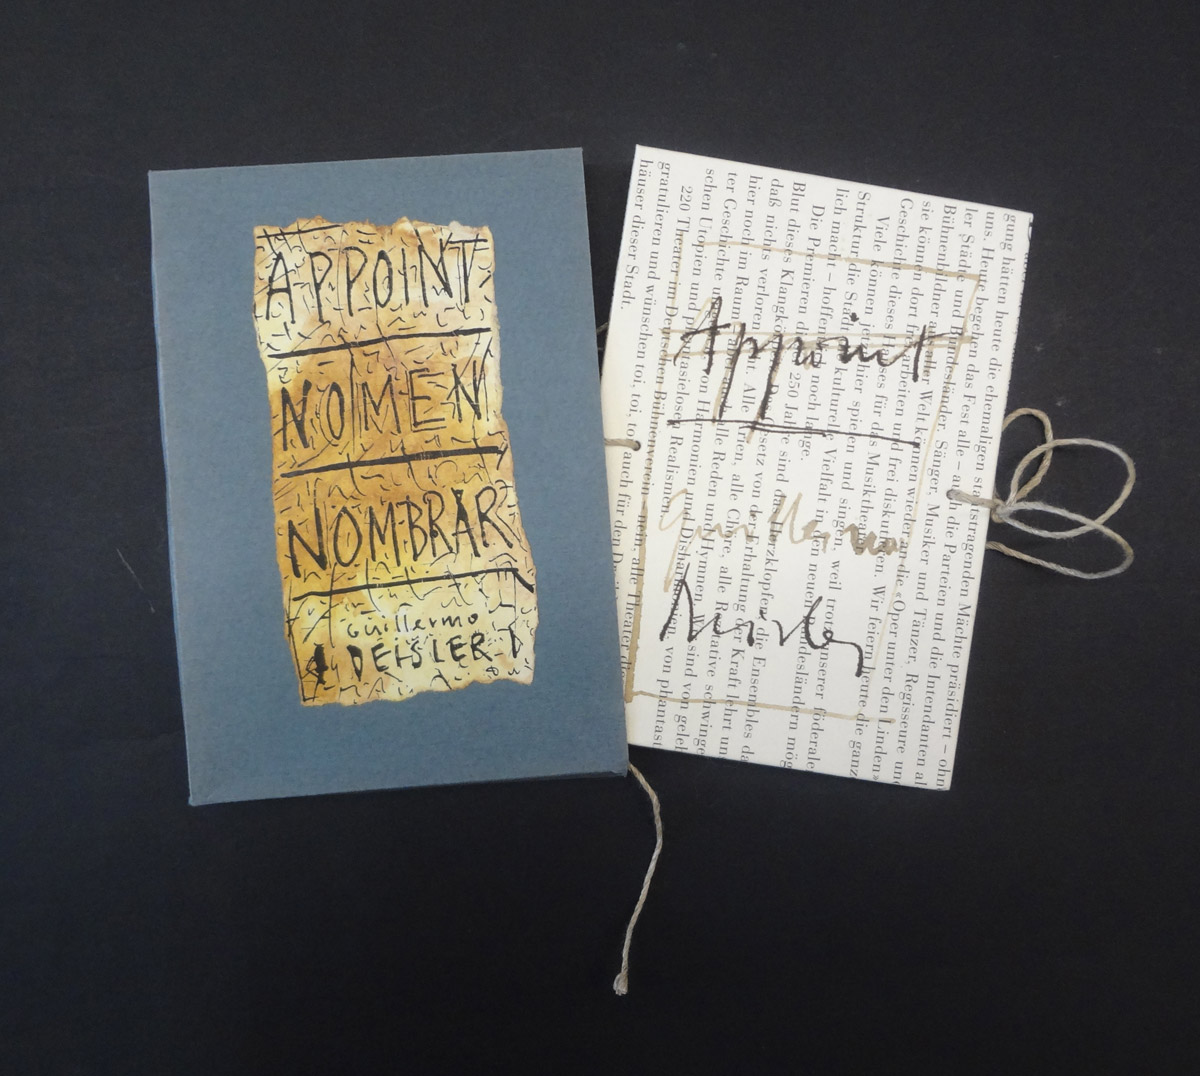 APPOINT
NOMEN
NOMBRAR
Guillermo
DEISLER
Appoint
Guillermo
Deisler
gung hätten heute die ehemaligen staatstragenden Mächte präsidiert – ohn
uns. Heute begehen das Fest alle – auch die Parteien und die Intendanten al
ler Städte und Bundesländer. Sänger, Musiker und Tänzer, Regisseure und
Bühnenbildner aus aller Welt können wieder an die «Oper unter den Linden»
sie können dort frei arbeiten und frei diskutieren. Wir feiern heute die ganz
Geschichte dieses Hauses für das Musiktheater
Viele können jetzt hier spielen und singen, weil trotz unserer föderale
Struktur die Stadt kulturelle Vielfalt in den neuen Bundesländern mög
lich macht – hoffen noch lange.
Die Premieren 250 Jahre sind das Herzklopfen, die Ensembles da
Blut dieses Gesetz von der Erhaltung der Kraft lehrt un
daß nichts verloren Alle Arien, alle Chöre, alle schwinge
hier noch im Raum alle Reden und Hymnen. sind von geleh
ter Geschichte von Harmonien und Disharmonien, von phantast
schen Utopien und phantasielosen Realismen.
220 Theater im Deutschen Bühnenverein – nein, alle Theater die
gratulieren und wünschen toi, toi, toi auch für den
häuser dieser Stadt.